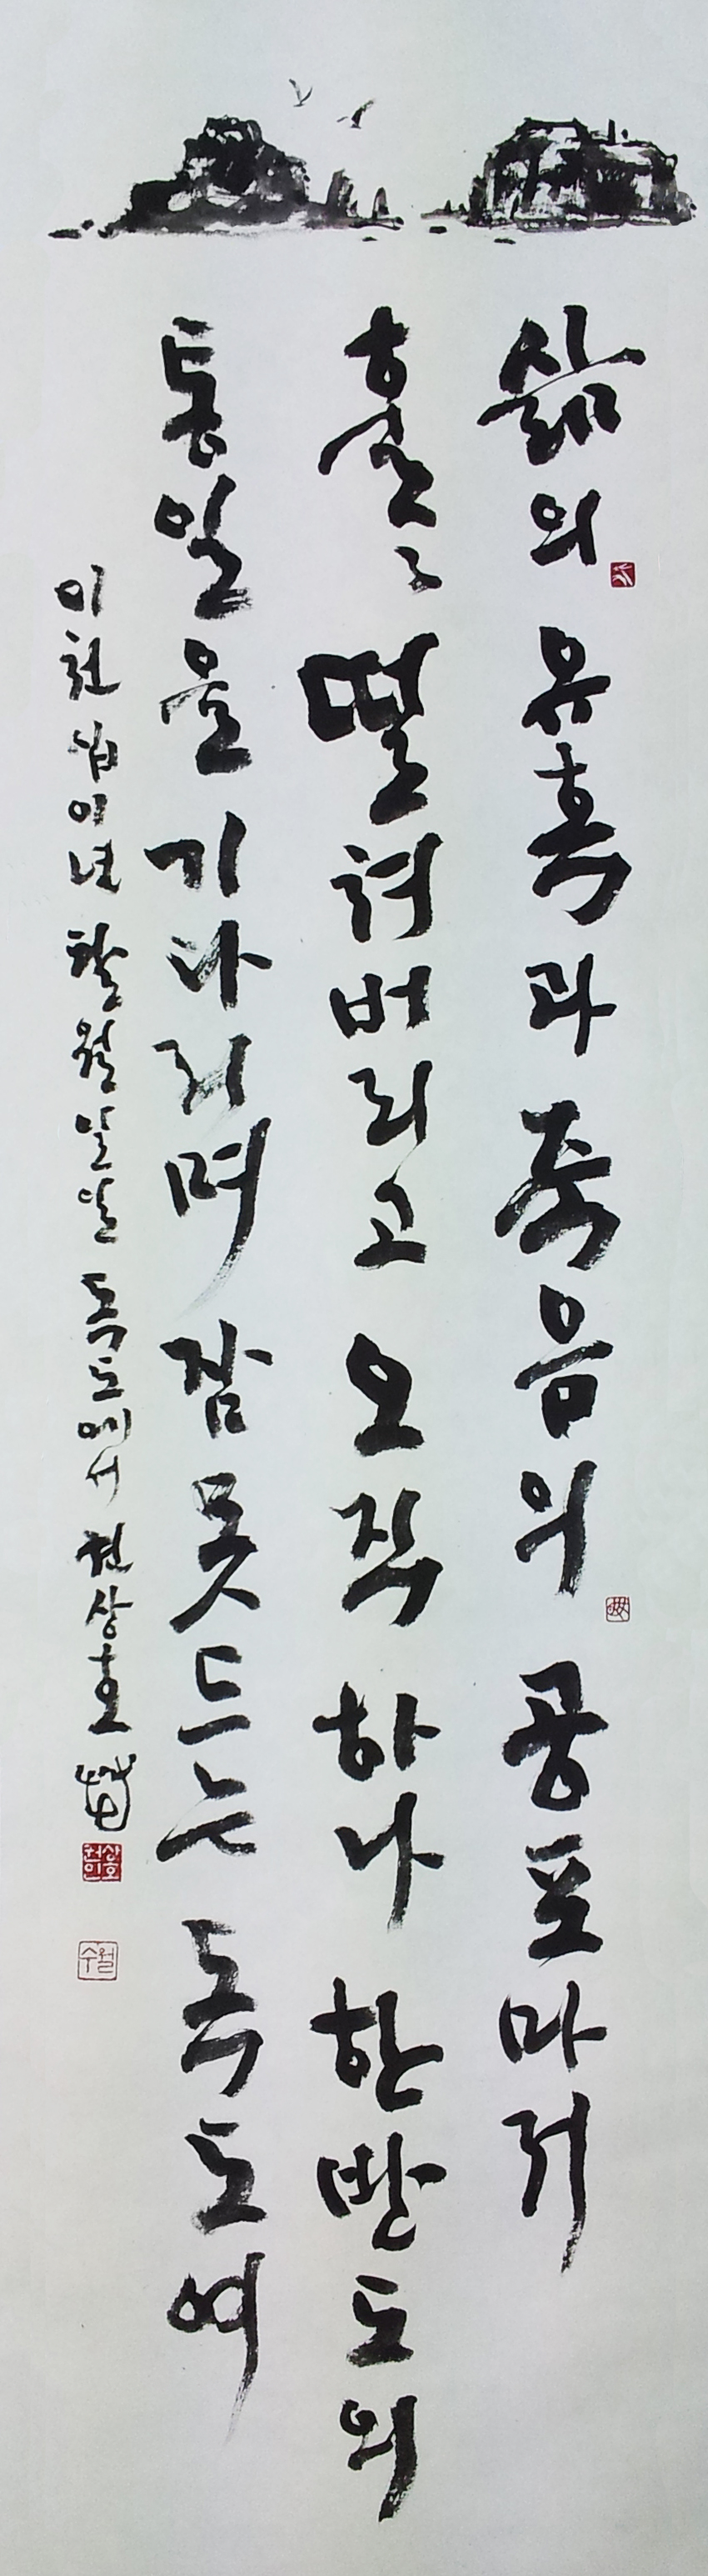 삶의 유혹과 죽음의 공포마저
훌〻 떨쳐버리고 오직 하나 한반도의
통일을 기다리며 잠 못드는 독도여
이천십이년 팔월 독도에서 천상호
천상호인
수월